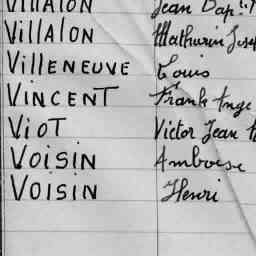 VILLALON Jean Bap.
VILLALON Mathurin Jose
VILLENEUVE Louis
VINCENT Frank Ange
VIOT Victor Jean
VOISIN Amboise
VOISIN Henri